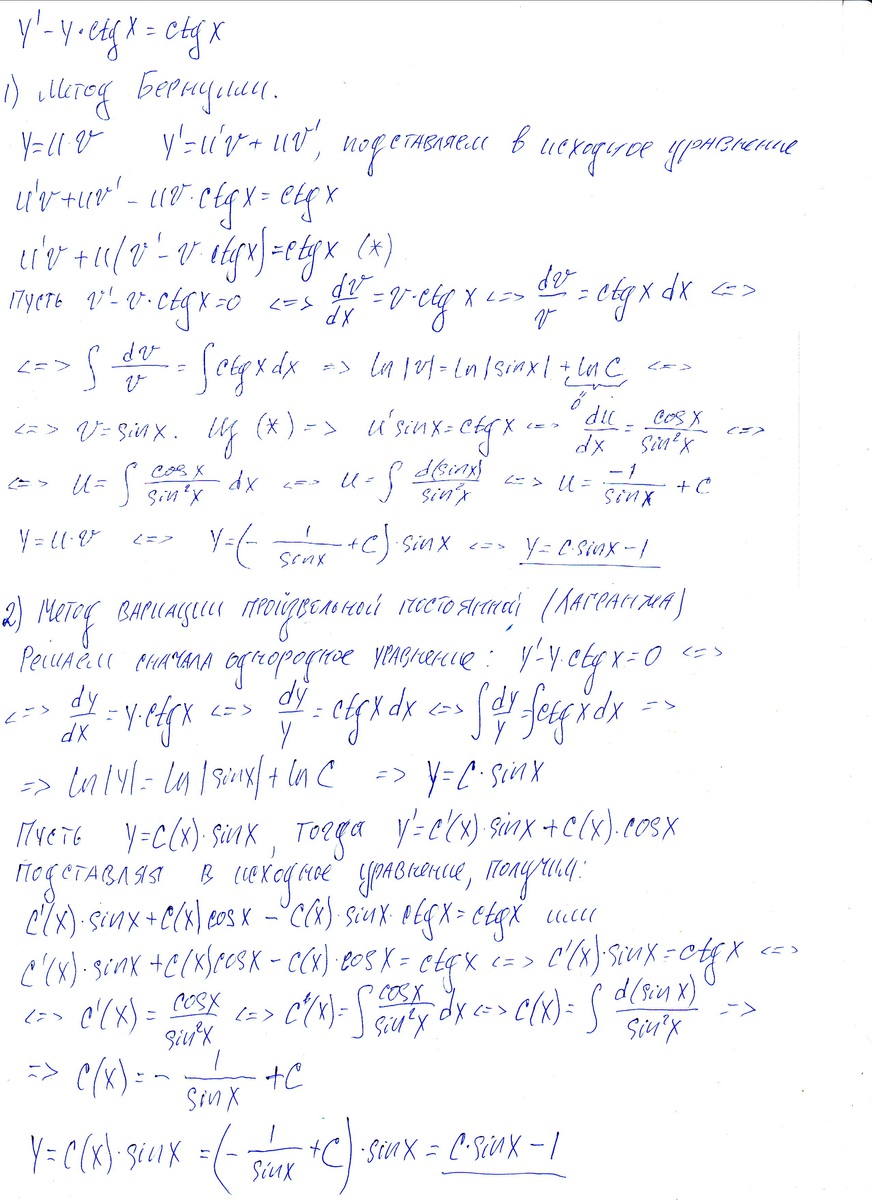 y' - y·ctgx = ctgx
1) Метод Бернулли.
y=u·v y'=u'v+uv', подставляем в исходное уравнение
u'v+uv' - uv·ctgx = ctgx
u'v+u(v'-v·ctgx)=ctgx (*)
Пусть v'-v·ctgx=0 <=> dv/dx = v·ctgx <=> dv/v = ctgx dx <=>
<=> ∫ dv/v = ∫ctgxdx => ln|v|=ln|sinx|+lnC <=>
0
<=> v=sinx. Из (*) => u'sinx=ctgx <=> du/dx = cosx/sin²x <=>
<=> u=∫ cosx/sin²x dx <=> u=∫ d(sinx)/sin²x <=> u= -1/sinx + C
y=u·v <=> y=(- 1/sinx +C)·sinx <=> y=C·sinx-1
2) Метод вариации произвольной постоянной (Лагранжа)
Решаем сначала однородное уравнение: y'-y·ctgx=0 <=>
<=> dy/dx = y·ctgx <=> dy/y = ctgxdx <=> ∫dy/y=∫ctgxdx =>
=> ln|y|=ln|sinx|+lnC => y=C·sinx
Пусть y=C(x)·sinx, тогда y'=C'(x)·sinx+C(x)·cosx
Подставляя в исходное уравнение, получим:
C'(x)·sinx+C(x)cosx - C(x)·sinx·ctgx=ctgx или
C'(x)·sinx+C(x)cosx-C(x)·cosx = ctgx <=> C'(x)·sinx=ctgx <=>
<=> C'(x) = cosx/sin²x <=> C(x)=∫cosx/sin²x dx <=> C(x)=∫ d(sinx)/sin²x =>
=> C(x)= - 1/sinx +C
y=C(x)·sinx =(- 1/sinx +C)·sinx = C·sinx-1